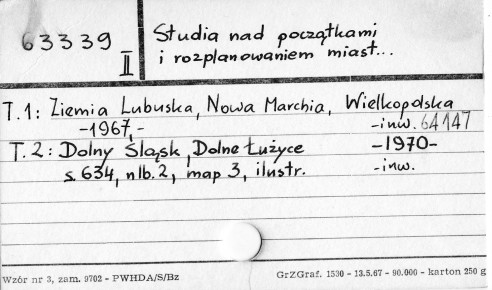 63339
II
Studia nad początkami
i rozplanowaniem miast...
T.1: Ziemia Lubuska, Nowa Marchia, Wielkopolska
-1967,- -inw. 64147
T.2: Dolny Śląsk, Dolne Łużyce -1970-
s. 634, nlb. 2, map 3, ilustr. -inw.
Wzór nr 3, zam. 9702 - PWHDA/S/Bz GrZGraf. 1530 - 13.5.67 - 90.000 - karton 250 g